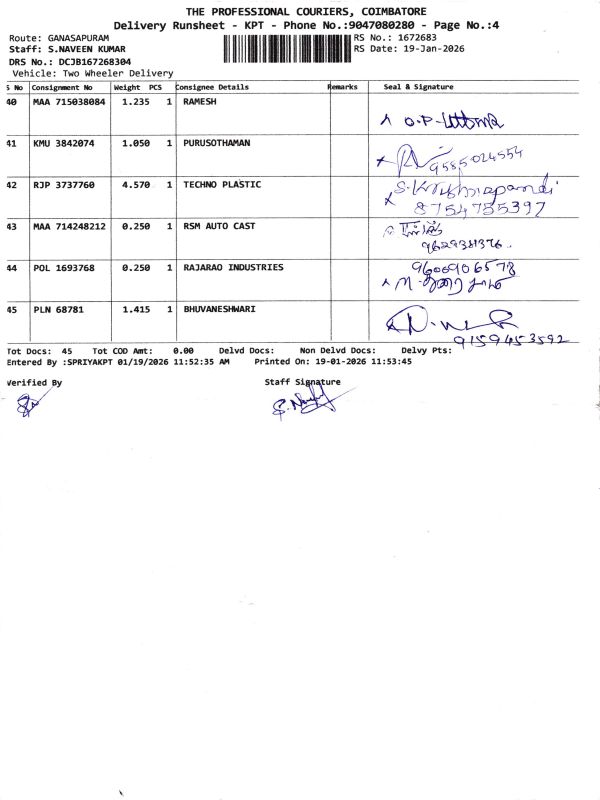 THE PROFESSIONAL COURIERS, COIMBATORE
Delivery Runsheet - KPT - Phone No.:9047080280 - Page No.:4
Route: GANASAPURAM RS No.: 1672683
Staff: S.NAVEEN KUMAR RS Date: 19-Jan-2026
DRS No.: DCJB167268304
Vehicle: Two Wheeler Delivery
S No Consignment No Weight PCS Consignee Details Remarks Seal & Signature
40 MAA 715038084 1.235 1 RAMESH
O.P.
41 KMU 3842074 1.050 1 PURUSOTHAMAN
9585024554
42 RJP 3737760 4.570 1 TECHNO PLASTIC S. Krushnapandi
8754755397
43 MAA 714248212 0.250 1 RSM AUTO CAST
9629381376
44 POL 1693768 0.250 1 RAJARAO INDUSTRIES 9600906578
M.
45 PLN 68781 1.415 1 BHUVANESHWARI
9159453592
Tot Docs: 45 Tot COD Amt: 0.00 Delvd Docs: Non Delvd Docs: Delvy Pts:
Entered By :SPRIYAKPT 01/19/2026 11:52:35 AM Printed On: 19-01-2026 11:53:45
Verified By Staff Signature